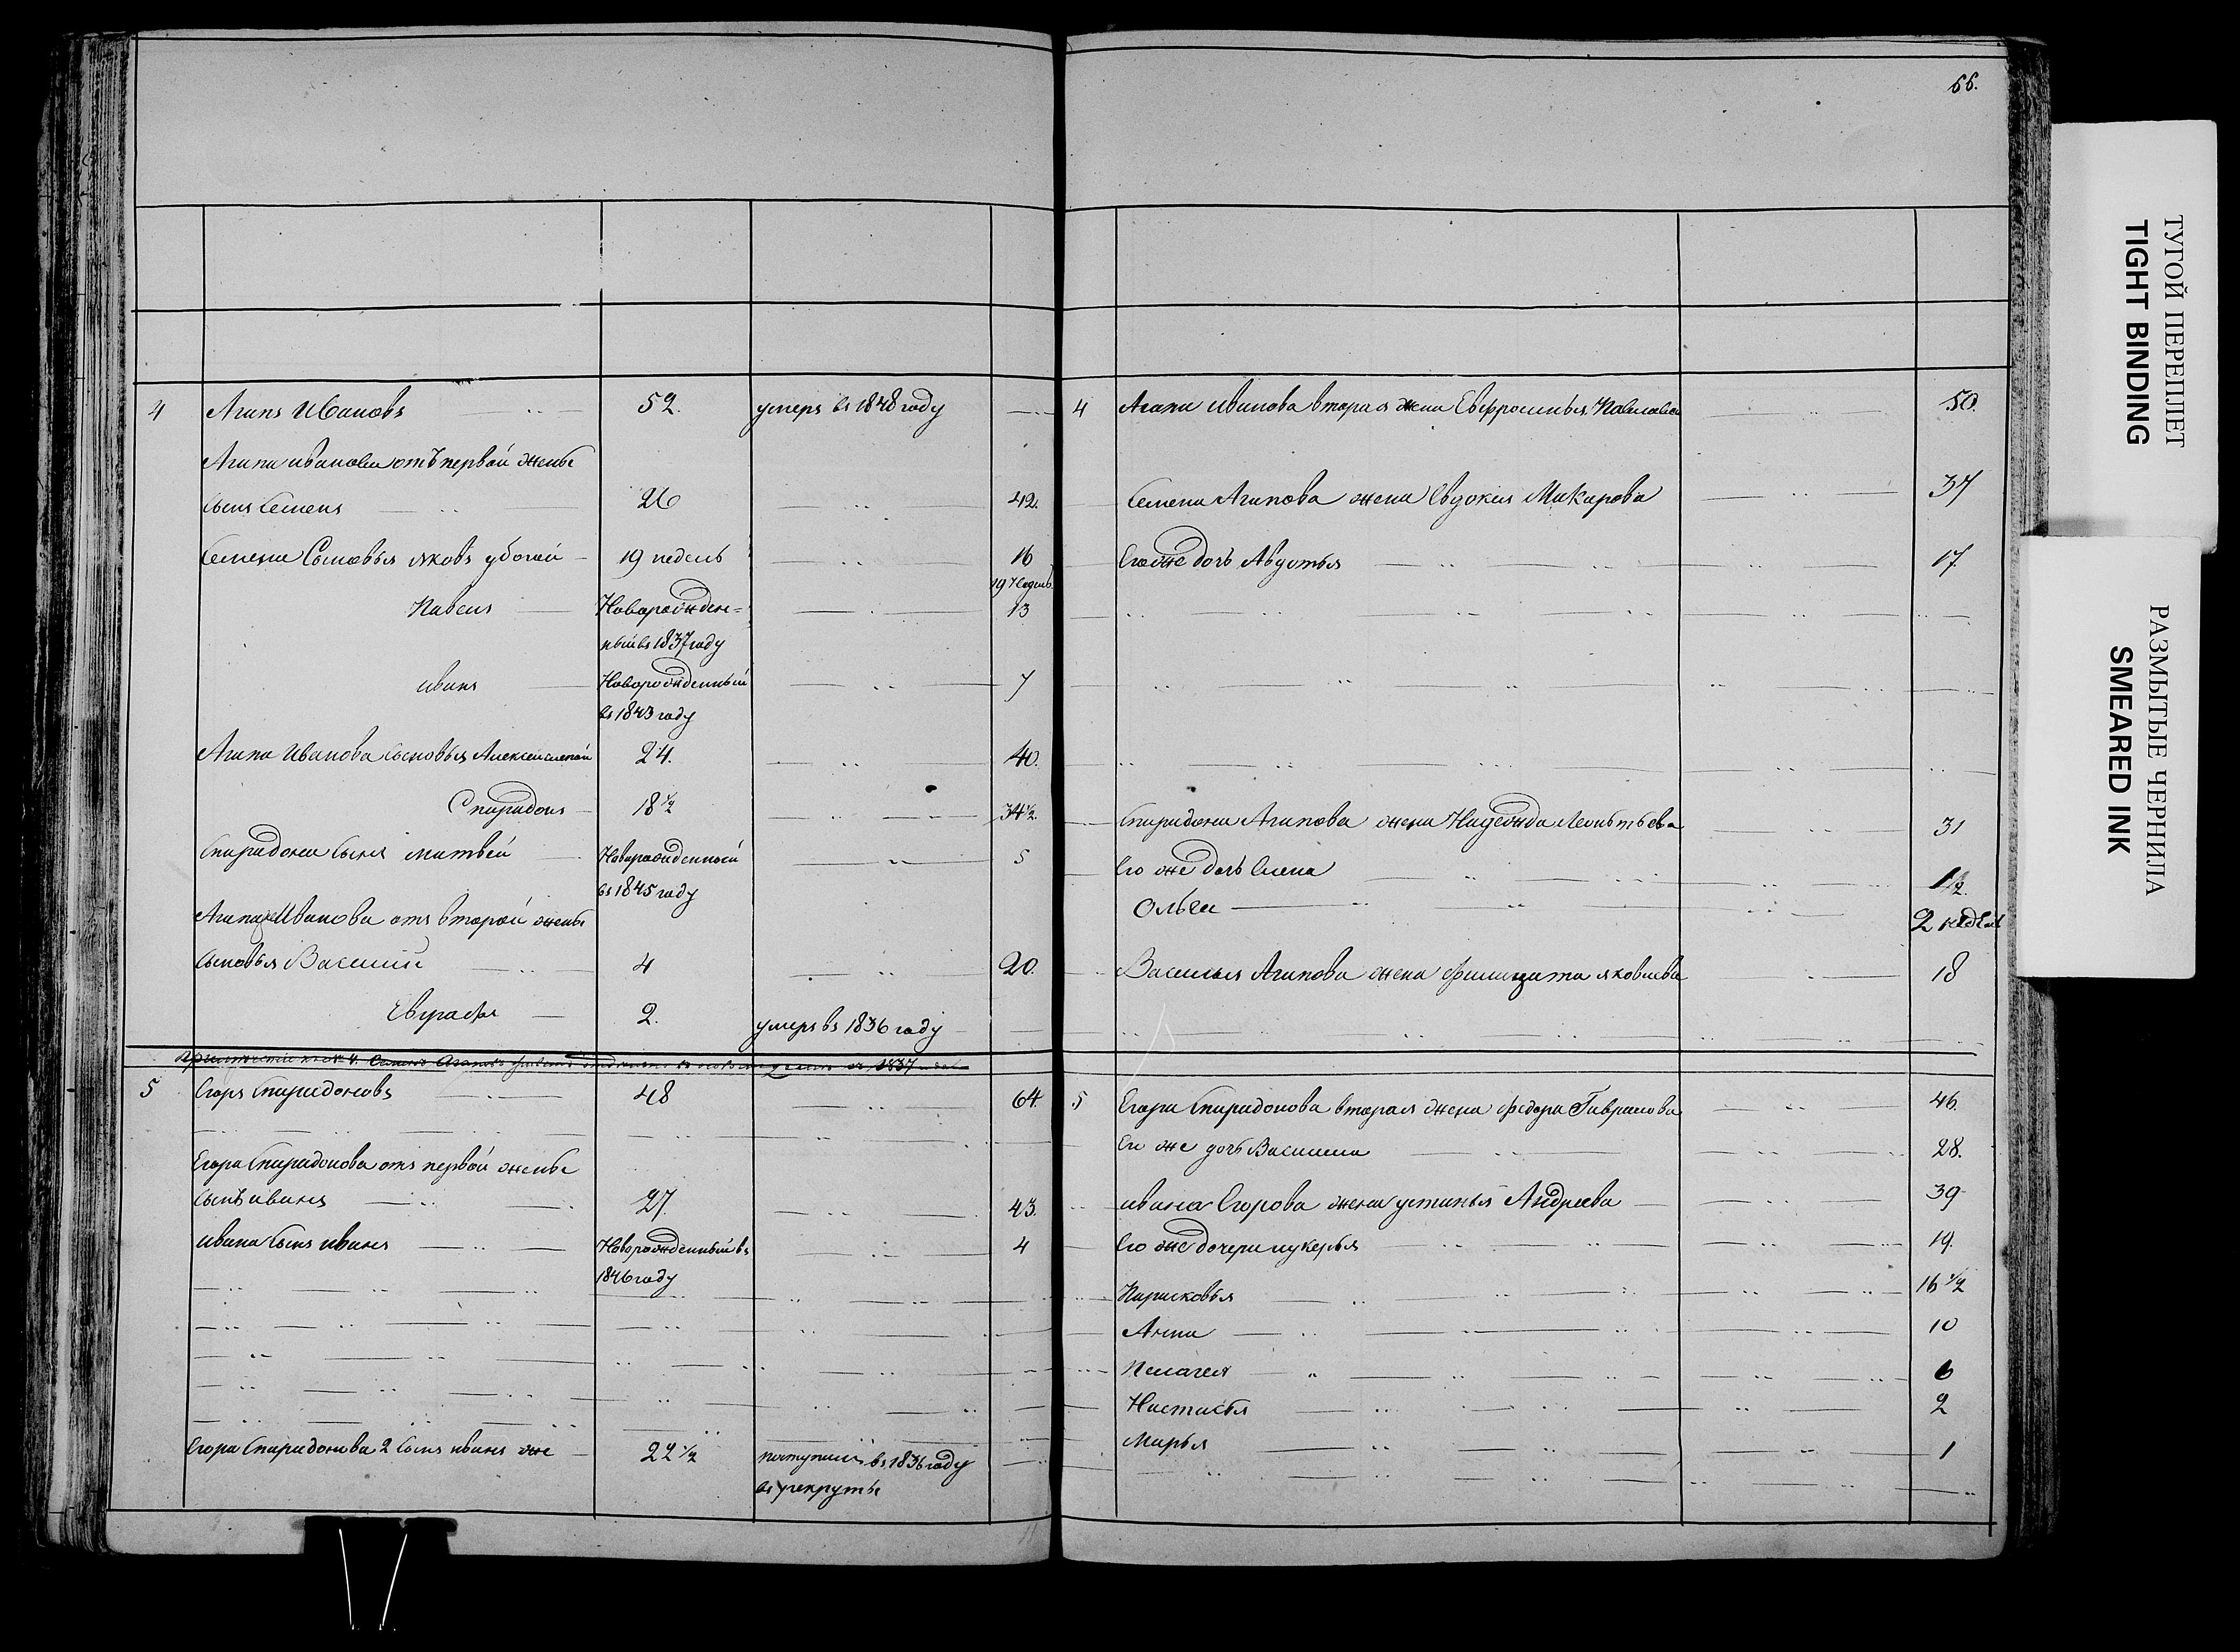 66.
4 Агапъ Ивановъ 52. умеръ въ 1848 году
Агапа Иванова отъ первой жены
сынъ Семенъ 26 42.
Семена Сыновья Яковъ убогой 19 недель 16
19 недель
Павелъ Новорожден= 13
ный въ 1837 году
Иванъ Новорожденный 7
въ 1843 году
Агапа Иванова сыновья Алексей слепой 24. 40.
Спиридонъ 18 ½ 34 ½.
Спиридона сынъ Матвей Новорожденный 5
въ 1845 году
Агапа Иванова отъ второй жены
сыновья Василий 4 20.
Евграфъ 2. умеръ въ 1836 году
1837
5 Егоръ Спиридоновъ 48 64.
Егора Спиридонова отъ первой жены
сынъ Иванъ 27. 43.
Ивана сынъ Иванъ Новорожденный въ 4
1846 году
Егора Спиридонова 2 сынъ Иванъ же 22 ½ поступилъ въ 1836 году
въ рекруты
4 Агапа Иванова вторая жена Евфросинья Павлова 50.
Семена Агапова жена Евдокия Макарова 37
Его же дочь Авдотья 17.
Спиридона Агапова жена Надежда Леонтьева 31
Его же дочь Елена 1 ½.
Ольга 2 недели
Василья Агапова жена Филицата Яковлева 18
5 Егора Спиридонова вторая жена Федора Гаврилова 46.
Его же дочь Василиса 28.
Ивана Егорова жена Устинья Андреева 39
Его же дочери Лукерья 19.
Парасковья 16 ½
Анна 10
Пелагея 6
Настасья 2
Марья 1
ТУГОЙ ПЕРЕПЛЕТ
TIGHT BINDING
РАЗМЫТЫЕ ЧЕРНИЛА
SMEARED INK